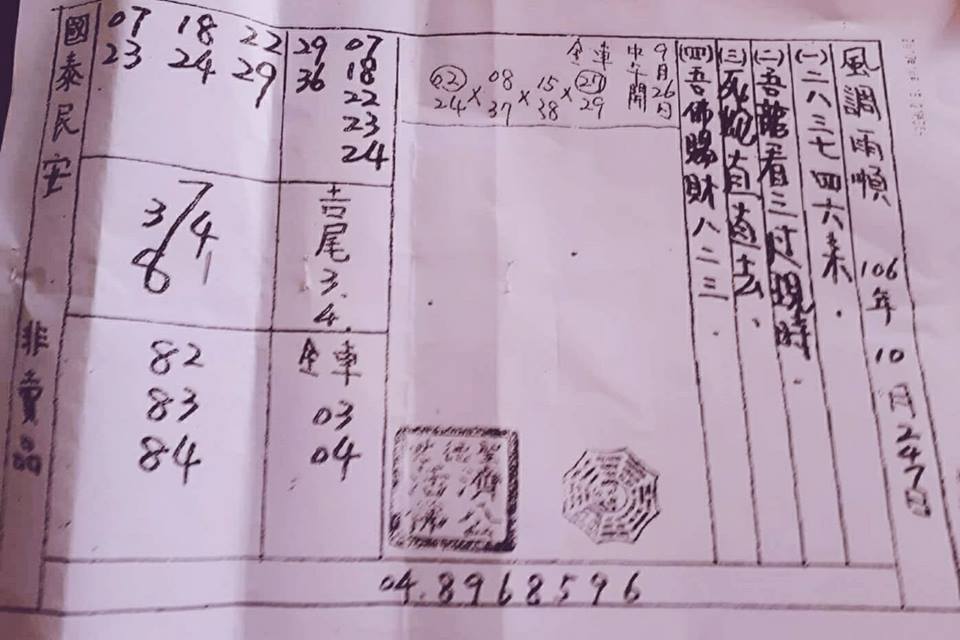 風調雨順 106年10月24日
(一)二八三七四六來.
(二)吾龍看三过現時.
(三)死蛇直直去.
(四)吾佛賜財八二三.
9月26日
中午開
全車
02 × 08 × 15 × 27
24 37 38 29
29 07
36 18
22
23
24
吉尾3.4.
全車
03
04
07 18 22
23 24 29
3/7 4
8 1
82
83
84
國泰民安 非賣品
濟公
04.8968596